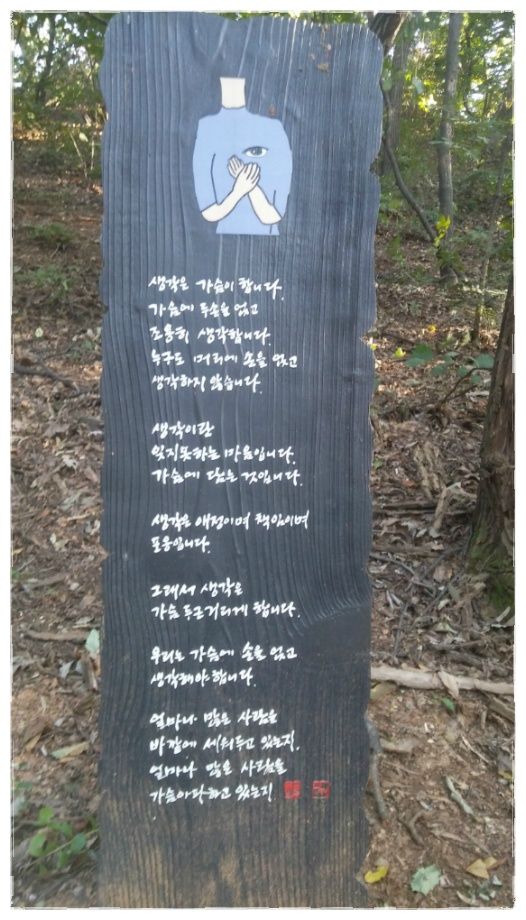 생각은 가슴이 합니다.
가슴에 두손을 얹고
조용히 생각합니다.
누구도 머리에 손을 얹고
생각하지 않습니다.
생각이란
잊지못하는 마음입니다.
가슴에 담는 것입니다.
생각은 애정이며 책임이며
포용입니다.
그래서 생각은
가슴 두근거리게 합니다.
우리는 가슴에 손을 얹고
생각해야 합니다.
얼마나 많은 사람을
바깥에 세워두고 있는지.
얼마나 많은 사람을
가슴아파하고 있는지